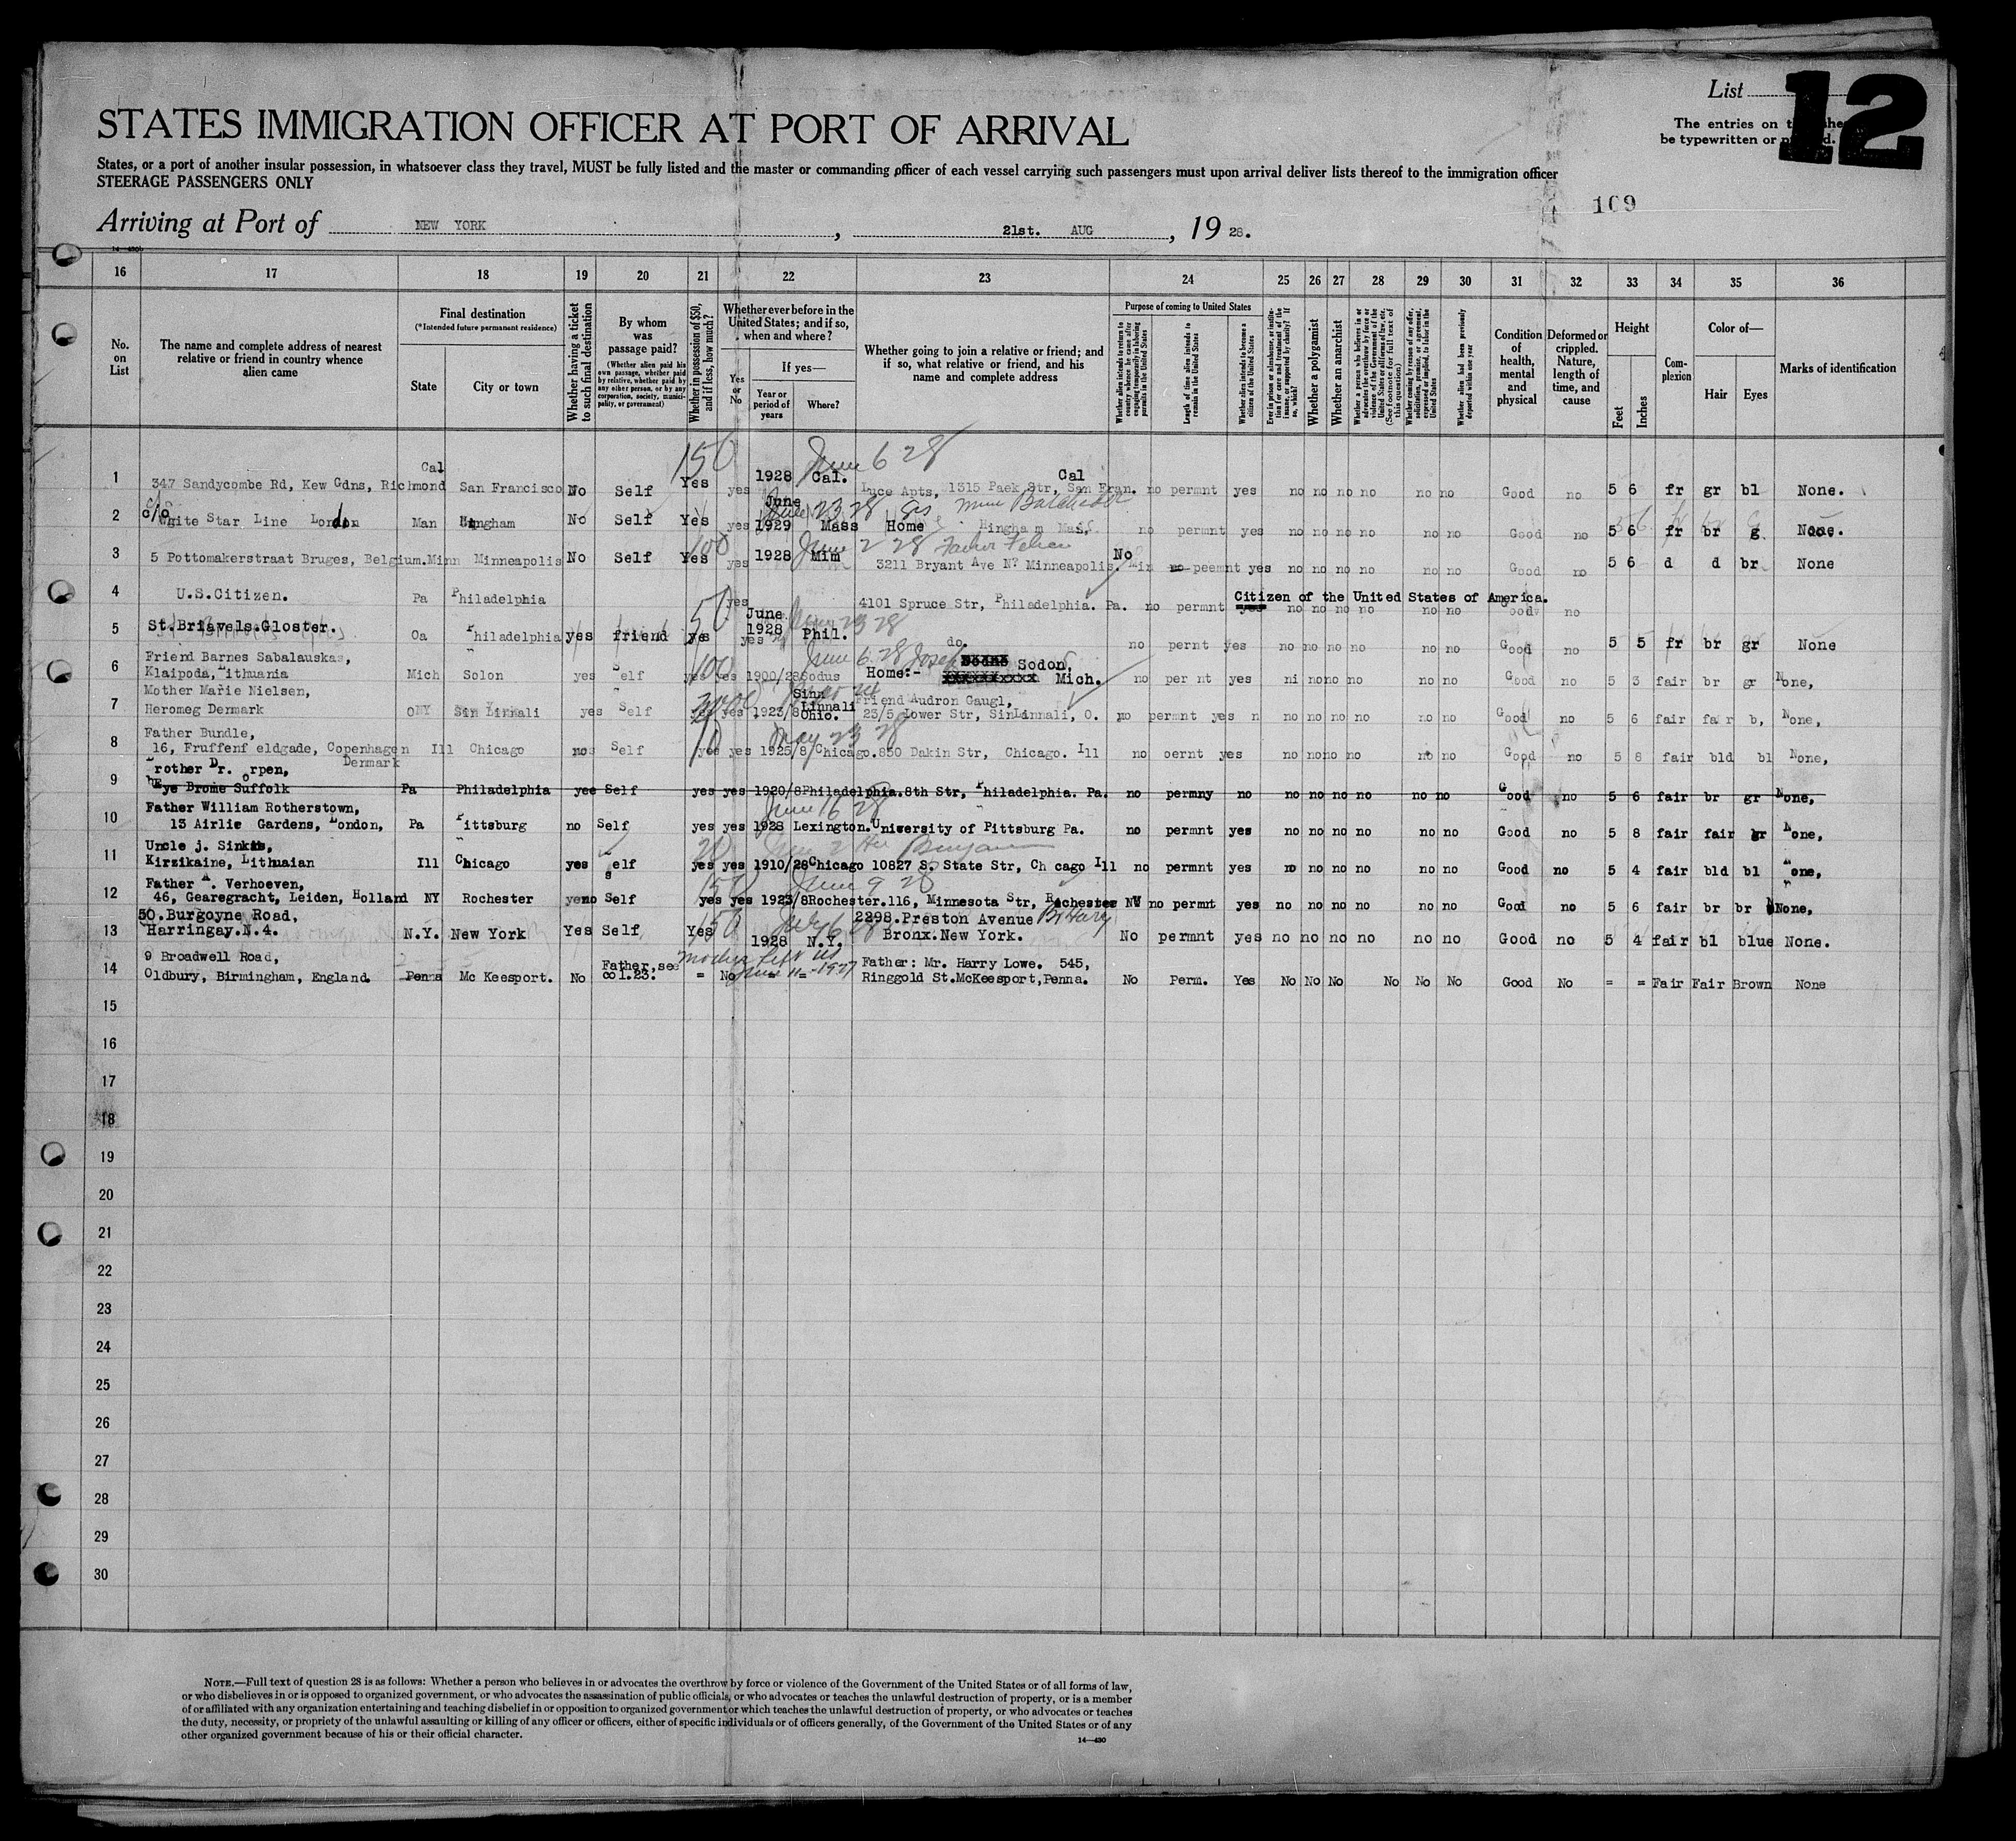 List 12
STATES IMMIGRATION OFFICER AT PORT OF ARRIVAL
The entries on
be typewritten or
States, or a port of another insular possession, in whatsoever class they travel, MUST be fully listed and the master or commanding officer of each vessel carrying such passengers must upon arrival deliver lists thereof to the immigration officer
STEERAGE PASSENGERS ONLY
109
Arriving at Port of NEW YORK , 21st. AUG , 19 28.
16 17 18 19 20 21 22 23 24 25 26 27 28 29 30 31 32 33 34 35 36
No. on List
The name and complete address of nearest relative or friend in country whence alien came
Final destination
(*Intended future permanent residence)
State
City or town
Whether having a ticket to such final destination
By whom was passage paid?
(Whether alien paid his own passage, whether paid by relative, whether paid by any other person, or by any corporation, society, municipality, or government)
Whether in possession of $50, and if less, how much?
Whether ever before in the United States; and if so, when and where?
Yes or No
If yes—
Year or period of years
Where?
Whether going to join a relative or friend; and if so, what relative or friend, and his name and complete address
Purpose of coming to United States
Whether alien intends to return to country whence he came after engaging temporarily in laboring pursuits in the United States
Length of time alien intends to remain in the United States
Whether alien intends to become a citizen of the United States
Ever in prison or almshouse, or institution for care and treatment of the insane, or supported by charity? If so, which?
Whether a polygamist
Whether an anarchist
Whether a person who believes in or advocates the overthrow by force or violence of the Government of the United States or all forms of law, etc. (See footnote for full text of this question)
Whether coming by reason of any offer, solicitation, promise, or agreement, expressed or implied, to labor in the United States
Whether alien had been previously deported within one year
Condition of health, mental and physical
Deformed or crippled. Nature, length of time, and cause
Height
Feet
Inches
Complexion
Color of—
Hair
Eyes
Marks of identification
150 June 6 28
1 347 Sandycombe Rd, Kew Gdns, Richmond Cal San Francisco No Self Yes yes 1928 Cal. Luce Apts, 1315 Paek Str, San Fran. Cal no permnt yes no no no no no no Good no 5 6 fr gr bl None.
June 23 28
2 c/o White Star Line London Man Hingham No Self Yes yes June 1929 Mass Home Hingham Mass. no permnt yes no no no no no no Good no 5 6 fr br g None.
100 June 2 28
3 5 Pottomakerstraat Bruges, Belgium. Minn Minneapolis No Self Yes yes 1928 Mim 3211 Bryant Ave No Minneapolis. Min No no peemnt yes no no no no no no Good no 5 6 d d br None
4 U.S.Citizen. Pa Philadelphia yes 4101 Spruce Str, Philadelphia. Pa. no permnt yes Citizen of the United States of America. no no no no no no Good no
50 23 28
5 St.Briavels.Gloster. Oa Philadelphia yes friend yes yes June 1928 Phil. do. no pernt yes no no no no no no Good no 5 5 fr br gr None
100 June 6 28 Josef
6 Friend Barnes Sabalauskas,
Klaipoda, Lithuania Mich Solon yes Self yes yes 1900/28 Sodus Home:- Sodon, Mich. no per nt yes ni no no no no no Good no 5 3 fair br gr None,
7 Mother Marie Nielsen,
Heromeg Denmark ONY Sin Linnali yes Self yes yes 1923/8 Sinn Linnali Ohio. Friend Audron Gaugl,
23/5 Lower Str, SinLinnali, O. no permnt yes n no no no no no no Good no 5 6 fair fair b, None,
10 May 23 28
8 Father Bundle,
16, Fruffenf eldgade, Copenhagen Denmark Ill Chicago no Self yes yes 1925/8 Chicago. 850 Dakin Str, Chicago. Ill no oernt yes no no no no no no Good no 5 8 fair bld bl None,
9 Brother Dr. Orpen,
Eye Brome Suffolk Pa Philadelphia yes Self yes yes 1920/8 Philadelphia. 8th Str, Philadelphia. Pa. no permny no no no no no no no Good no 5 6 fair br gr None,
June 16 28
10 Father William Rotherstown,
13 Airlie Gardens, London, Pa Pittsburg no Self yes yes 1928 Lexington. University of Pittsburg Pa. no permnt yes no no no no no no Good no 5 8 fair fair gr None,
20 June 2
11 Uncle j. Sinkis,
Kirzikaine, Lithuaian Ill Chicago yes self yes yes 1910/28 Chicago 10827 S. State Str, Ch cago Ill no permnt yes no no no no no no Good no 5 4 fair bld bl None,
150 June 9 28
12 Father A. Verhoeven,
46, Gearegracht, Leiden, Holland NY Rochester no Self yes yes 1923/8 Rochester. 116, Minnesota Str, Rochester NY no permnt yes no no no no no no Good no 5 6 fair br br None,
150 July 6 28
13 50.Burgoyne Road,
Harringay.N.4. N.Y. New York Yes Self Yes 1928 N.Y. 2298.Preston Avenue Br Harry
Bronx.New York. No permnt yes no no no no no no Good no 5 4 fair bl blue None.
mother left US June 11-1927
14 9 Broadwell Road,
Oldbury, Birmingham, England. Penna Mc Keesport. No Father, see col.23. = No = = Father: Mr. Harry Lowe. 545,
Ringgold St.McKeesport,Penna. No Perm. Yes No No No No No No Good No = = Fair Fair Brown None
15
16
17
18
19
20
21
22
23
24
25
26
27
28
29
30
NOTE.—Full text of question 28 is as follows: Whether a person who believes in or advocates the overthrow by force or violence of the Government of the United States or of all forms of law,
or who disbelieves in or is opposed to organized government, or who advocates the assassination of public officials, or who advocates or teaches the unlawful destruction of property, or is a member
of or affiliated with any organization entertaining and teaching disbelief in or opposition to organized government or which teaches the unlawful destruction of property, or who advocates or teaches
the duty, necessity, or propriety of the unlawful assaulting or killing of any officer or officers, either of specific individuals or of officers generally, of the Government of the United States or of any
other organized government because of his or their official character.
14—430